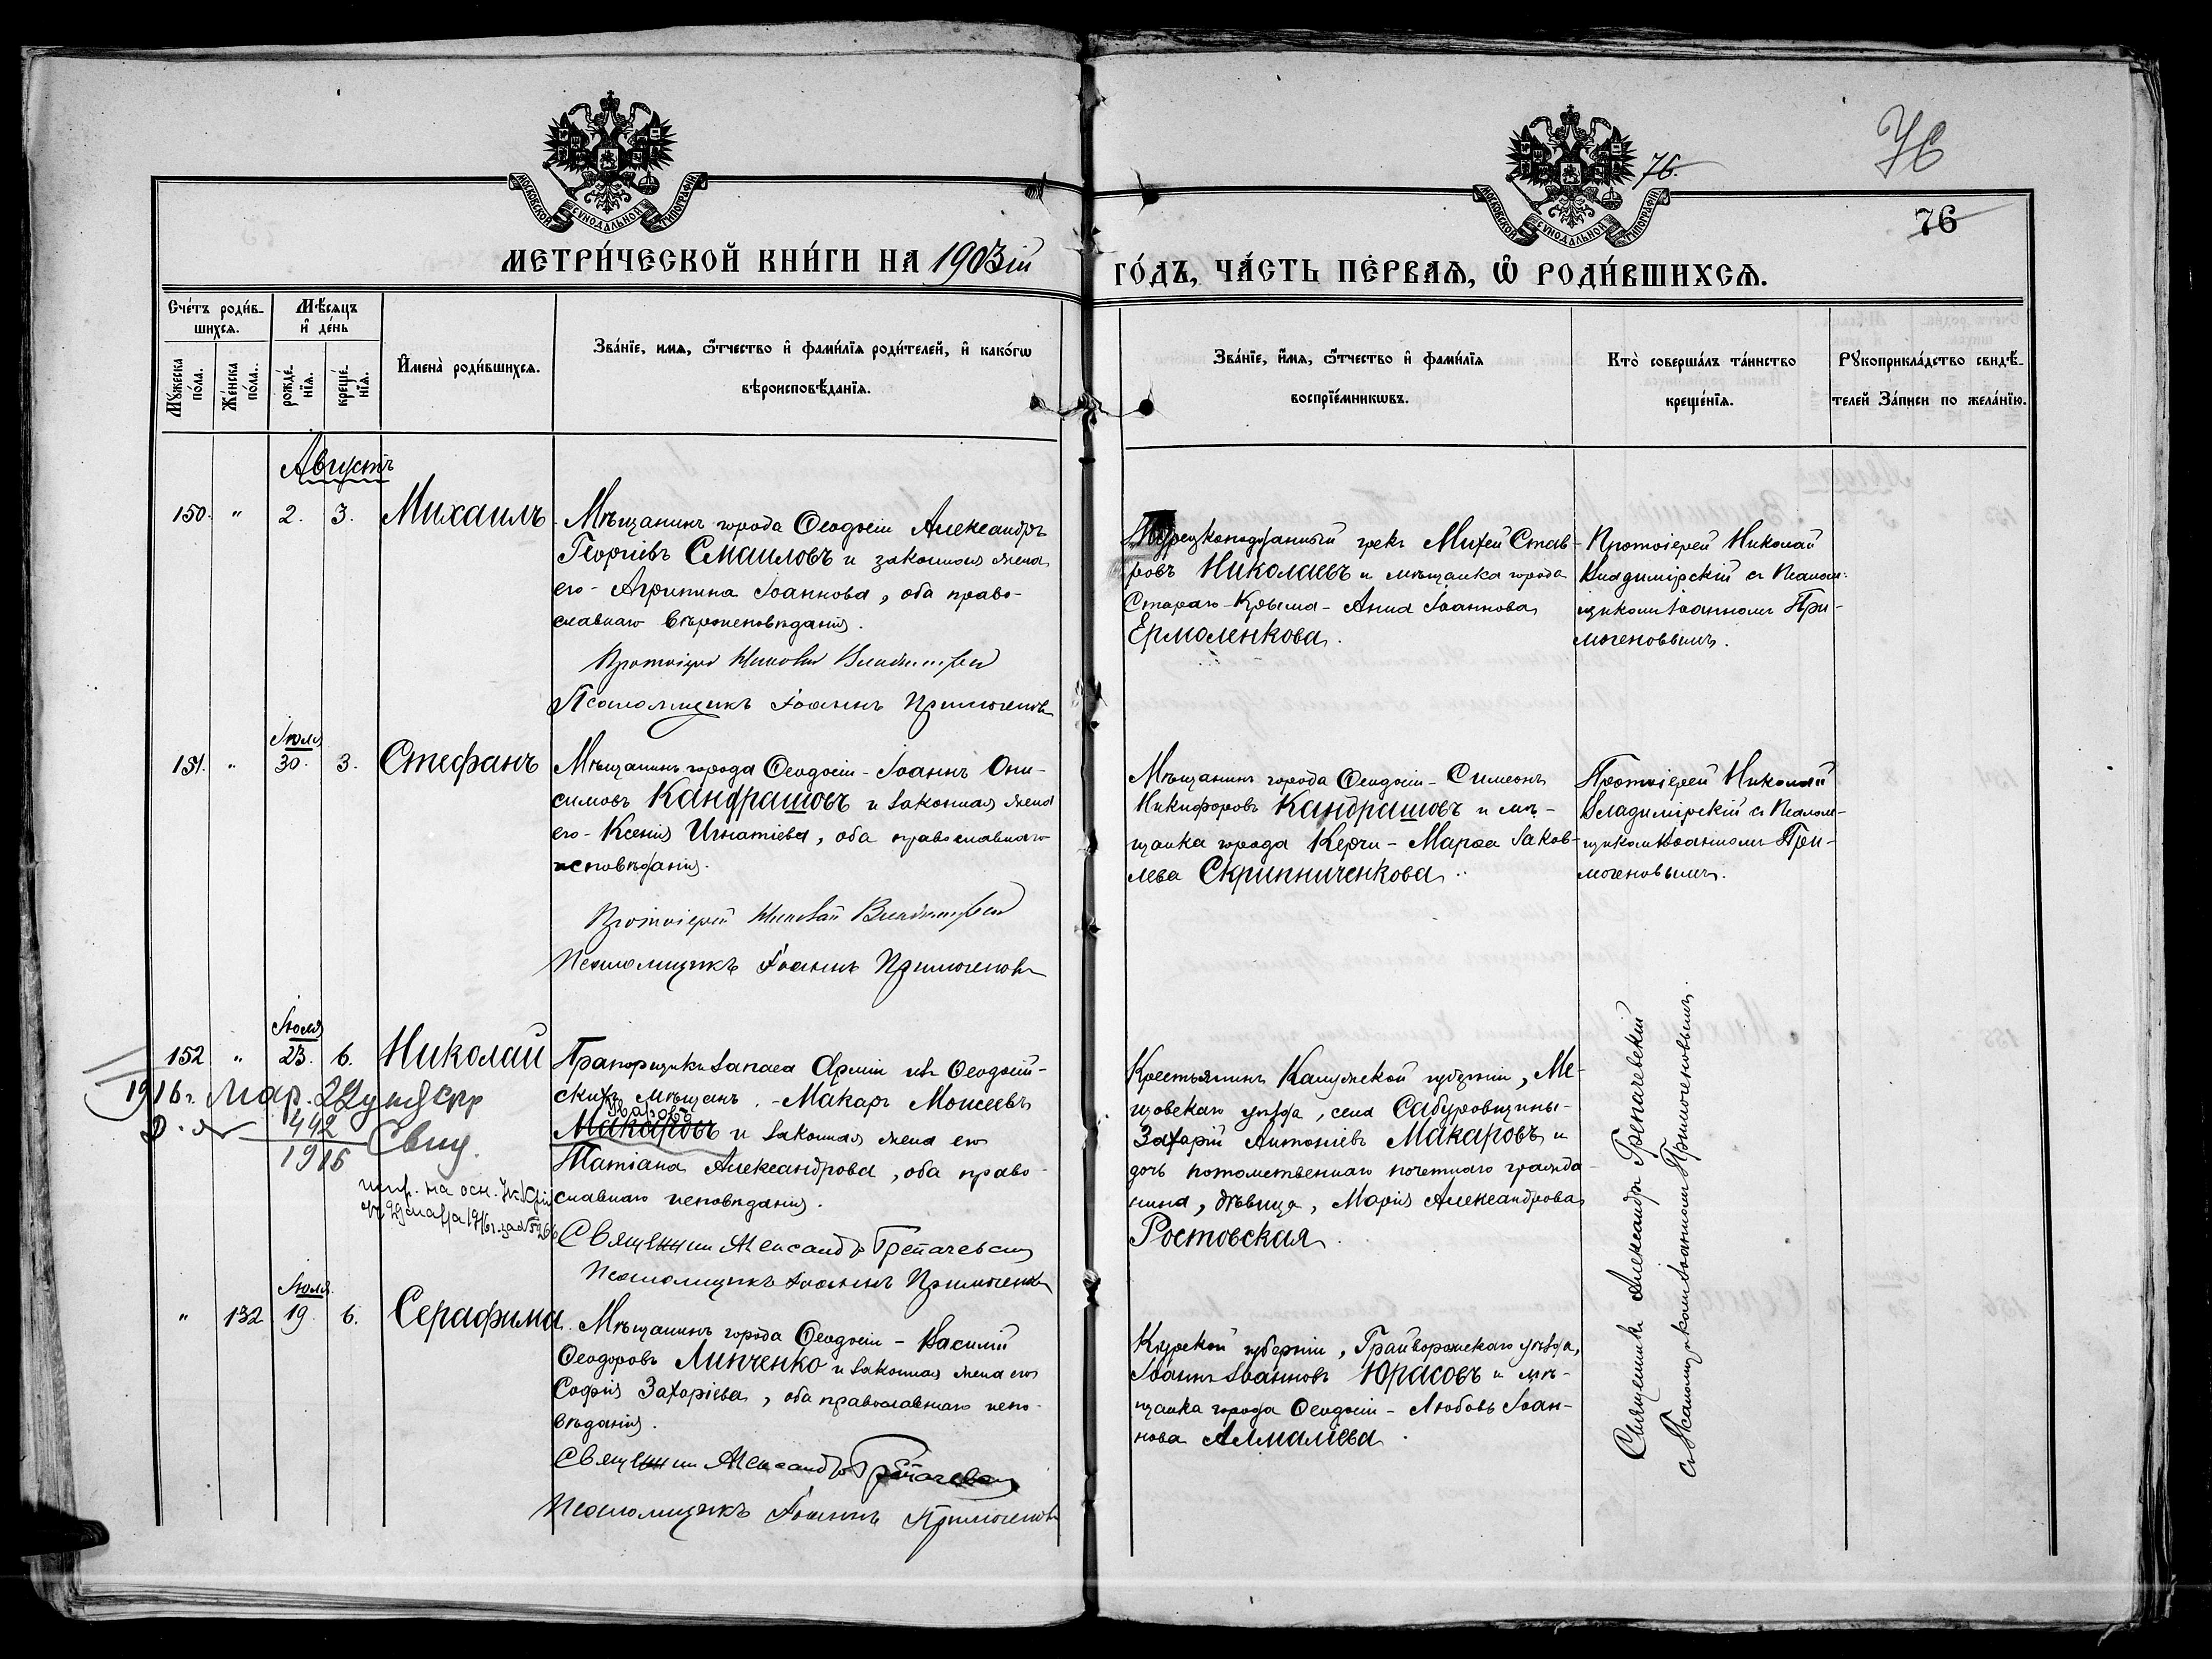 76.
76
76
МОСКОВСКОЙ СѴНОДАЛЬНОЙ ТИПОГРАФІИ
МОСКОВСКОЙ СѴНОДАЛЬНОЙ ТИПОГРАФІИ
МЕТРИ́ЧЕСКОЙ КНИ́ГИ НА 1903ій
ГО́ДЪ, ЧА́СТЬ ПЕ́РВАѦ, Ѡ РОДИ́ВШИХСѦ.
Сче́тъ роди́в-
шихсѧ.
Мѣ́сяцъ
и де́нь
Мꙋжеска
по́ла.
Же́нска
по́ла.
рожде́-
нїѧ.
креще́-
нїѧ.
Имена̀ роди́вшихсѧ.
Зва́нїе, имѧ, ѻ҆́тчество и фами́лїѧ роди́телей, и како́гѡ
вѣроисповѣ́данїѧ.
Зва́нїе, и́мѧ, ѻ҆́тчество и фами́лїѧ
воспрїе́мникѡвъ.
Кто̀ соверша́лъ та́инство
креще́нїѧ.
Рꙋкоприкла́дство свидѣ́-
телей За́писи по жела́нїю.
Августъ
150. " 2. 3. Михаилъ
Мѣщанинъ города Ѳеодосіи Александръ
Георгіевъ Смаиловъ и законная жена
его - Агрипина Іоаннова, оба право-
славнаго вѣроисповѣданія.
Протоіерей Николай Владимірскій
Псаломщикъ Іоаннъ Примогеновъ
Турецкоподданный грекъ Михей Став-
ровъ Николаевъ и мѣщанка города
Стараго-Крыма - Анна Іоаннова
Ермоленкова.
Протоіерей Николай
Владимірскій съ Псалом-
щикомъ Іоанномъ При-
могеновымъ.
Іюля
151. " 30. 3. Стефанъ
Мѣщанинъ города Ѳеодосіи - Іоаннъ Они-
симовъ Кандрашовъ и законная жена
его - Ксенія Игнатіева, оба православнаго
исповѣданія.
Протоіерей Николай Владимірскій
Псаломщикъ Іоаннъ Примогеновъ
Мѣщанинъ города Ѳеодосіи - Симеонъ
Никифоровъ Кандрашовъ и мѣ-
щанка города Керчи - Марѳа Іаков-
лева Скрипниченкова.
Протоіерей Николай
Владимірскій съ Псалом-
щикомъ Іоанномъ При-
могеновымъ.
Іюля
152 " 23. 6. Николай
Прапорщикъ запаса Арміи изъ Ѳеодосій-
скихъ мѣщанъ - Макаръ Моисеевъ
Макаровъ и законная жена его
Татіана Александрова, оба право-
славнаго исповѣданія.
Священникъ Александръ Грепачевскій
Псаломщикъ Іоаннъ Примогеновъ
1916 г. Мар. 22
442
1916
Свид.
Крестьянинъ Калужской губерніи, Ме-
щовскаго уѣзда, села Сабуровщины -
Захарій Антоніевъ Макаровъ и
дочь потомственнаго почетнаго гражда-
нина, дѣвица, Марія Александрова
Ростовская.
Священникъ Александръ Грепачевскій
съ Псаломщикомъ Іоанномъ Примогеновымъ.
Іюля
" 132 19. 6. Серафима
Мѣщанинъ города Ѳеодосіи - Василій
Ѳеодоровъ Линченко и законная жена его
Софія Захаріева, оба православнаго испо-
вѣданія.
Священникъ Александръ Грепачевскій
Псаломщикъ Іоаннъ Примогеновъ
Курской губерніи, Грайворонскаго уѣзда,
Іоаннъ Іоанновъ Юрасовъ и мѣ-
щанка города Ѳеодосіи - Любовь Іоан-
нова Алмаліева.